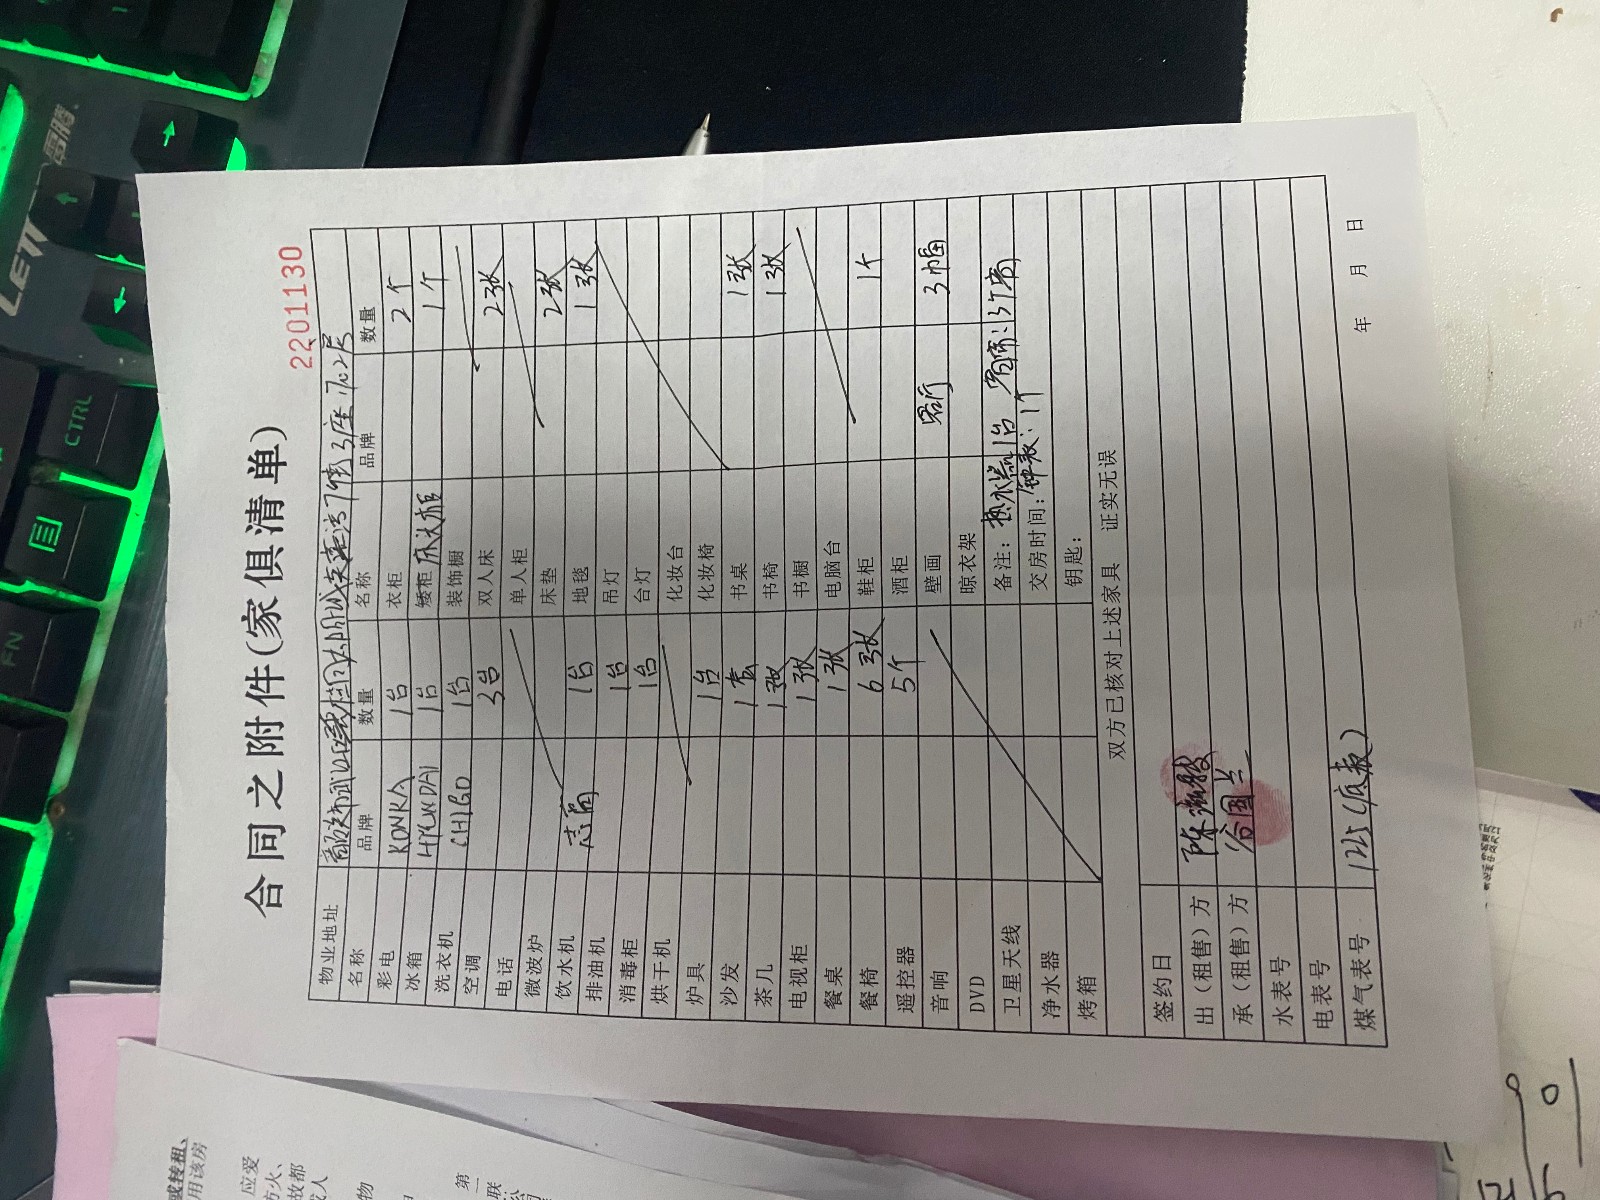 合同之附件(家俱清单)
2201130
物业地址 3座1702房
名称 品牌 数量 名称 品牌 数量
彩电 KONKA 1台 衣柜 2个
冰箱 HYUNDAI 1台 矮柜 床头柜 1个
洗衣机 CHIGO 1台 装饰橱
空调 3台 双人床 2张
电话 单人柜
微波炉 床垫 2张
饮水机 志高 1台 地毯 1张
排油机 1台 吊灯
消毒柜 1台 台灯
烘干机 化妆台
炉具 1台 化妆椅
沙发 1套 书桌 1张
茶几 1张 书椅 1张
电视柜 1张 书橱
餐桌 1张 电脑台
餐椅 6张 鞋柜 1个
遥控器 5个 酒柜
音响 壁画 3幅
DVD 晾衣架
卫星天线 备注: 热水器1台 窗帘:3个窗
净水器 交房时间: 钟表:1个
烤箱 钥匙:
双方已核对上述家具 证实无误
签约日
出(租售)方
承(租售)方 谷国兰
水表号
电表号
煤气表号 1215(底表)
年 月 日
CTRL
FN
或转租、
用该房
应爱
防火、
故都
物
第一
联